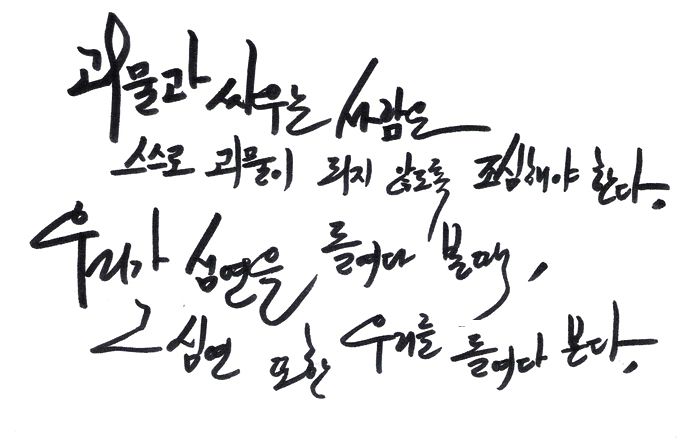 괴물과 싸우는 사람은
스스로 괴물이 되지 않도록 조심해야 한다.
우리가 심연을 들여다 볼때,
그 심연 또한 우리를 들여다 본다.